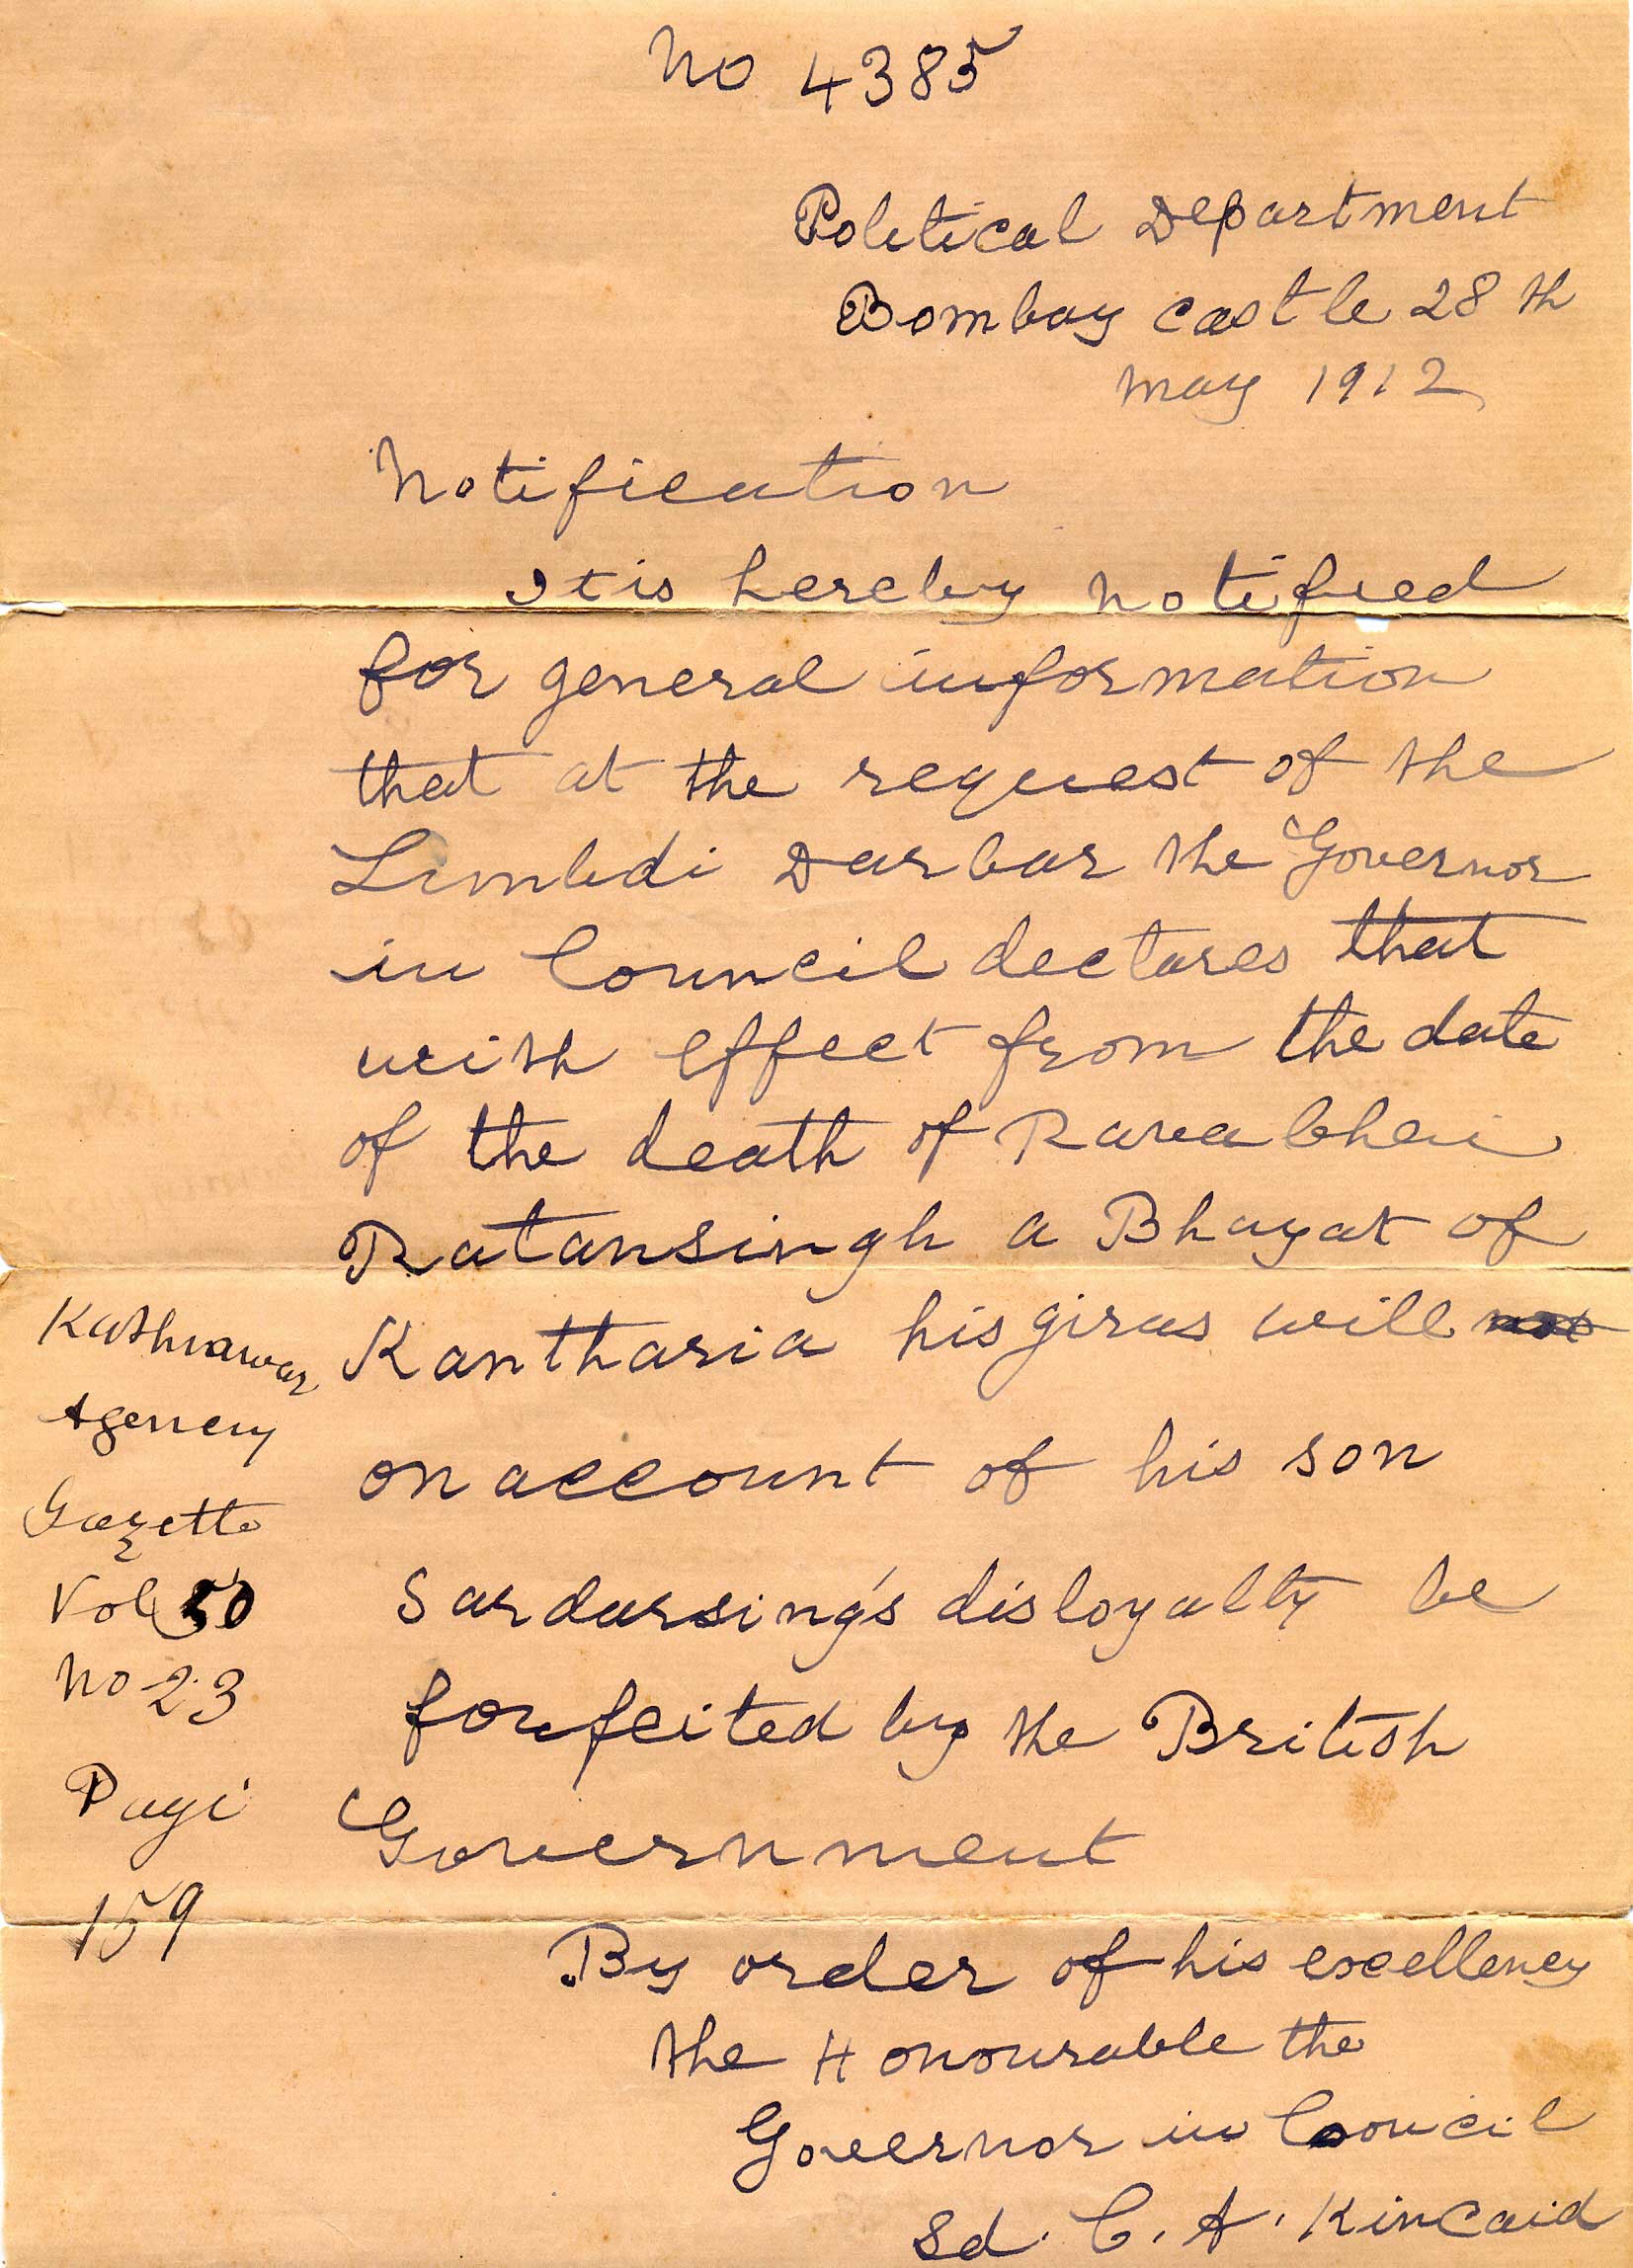 No 4385
Political Department
Bombay castle 28th
may 1912
Notification
It is hereby notified
for general information
that at the request of the
Limbdi Darbar the Governor
in Council dectares that
with effect from the date
of the death of Ravabhai
Ratansingh a Bhayat of
Kantharia his giras will
on account of his son
Sardarsing's disloyalty be
forfeited by the British
Government
Kathiawar
Agency
Gazette
Vol 50
No 23
Page
159
By order of his excellency
the Honourable the
Governor in Council
Sd. C. A. Kincaid